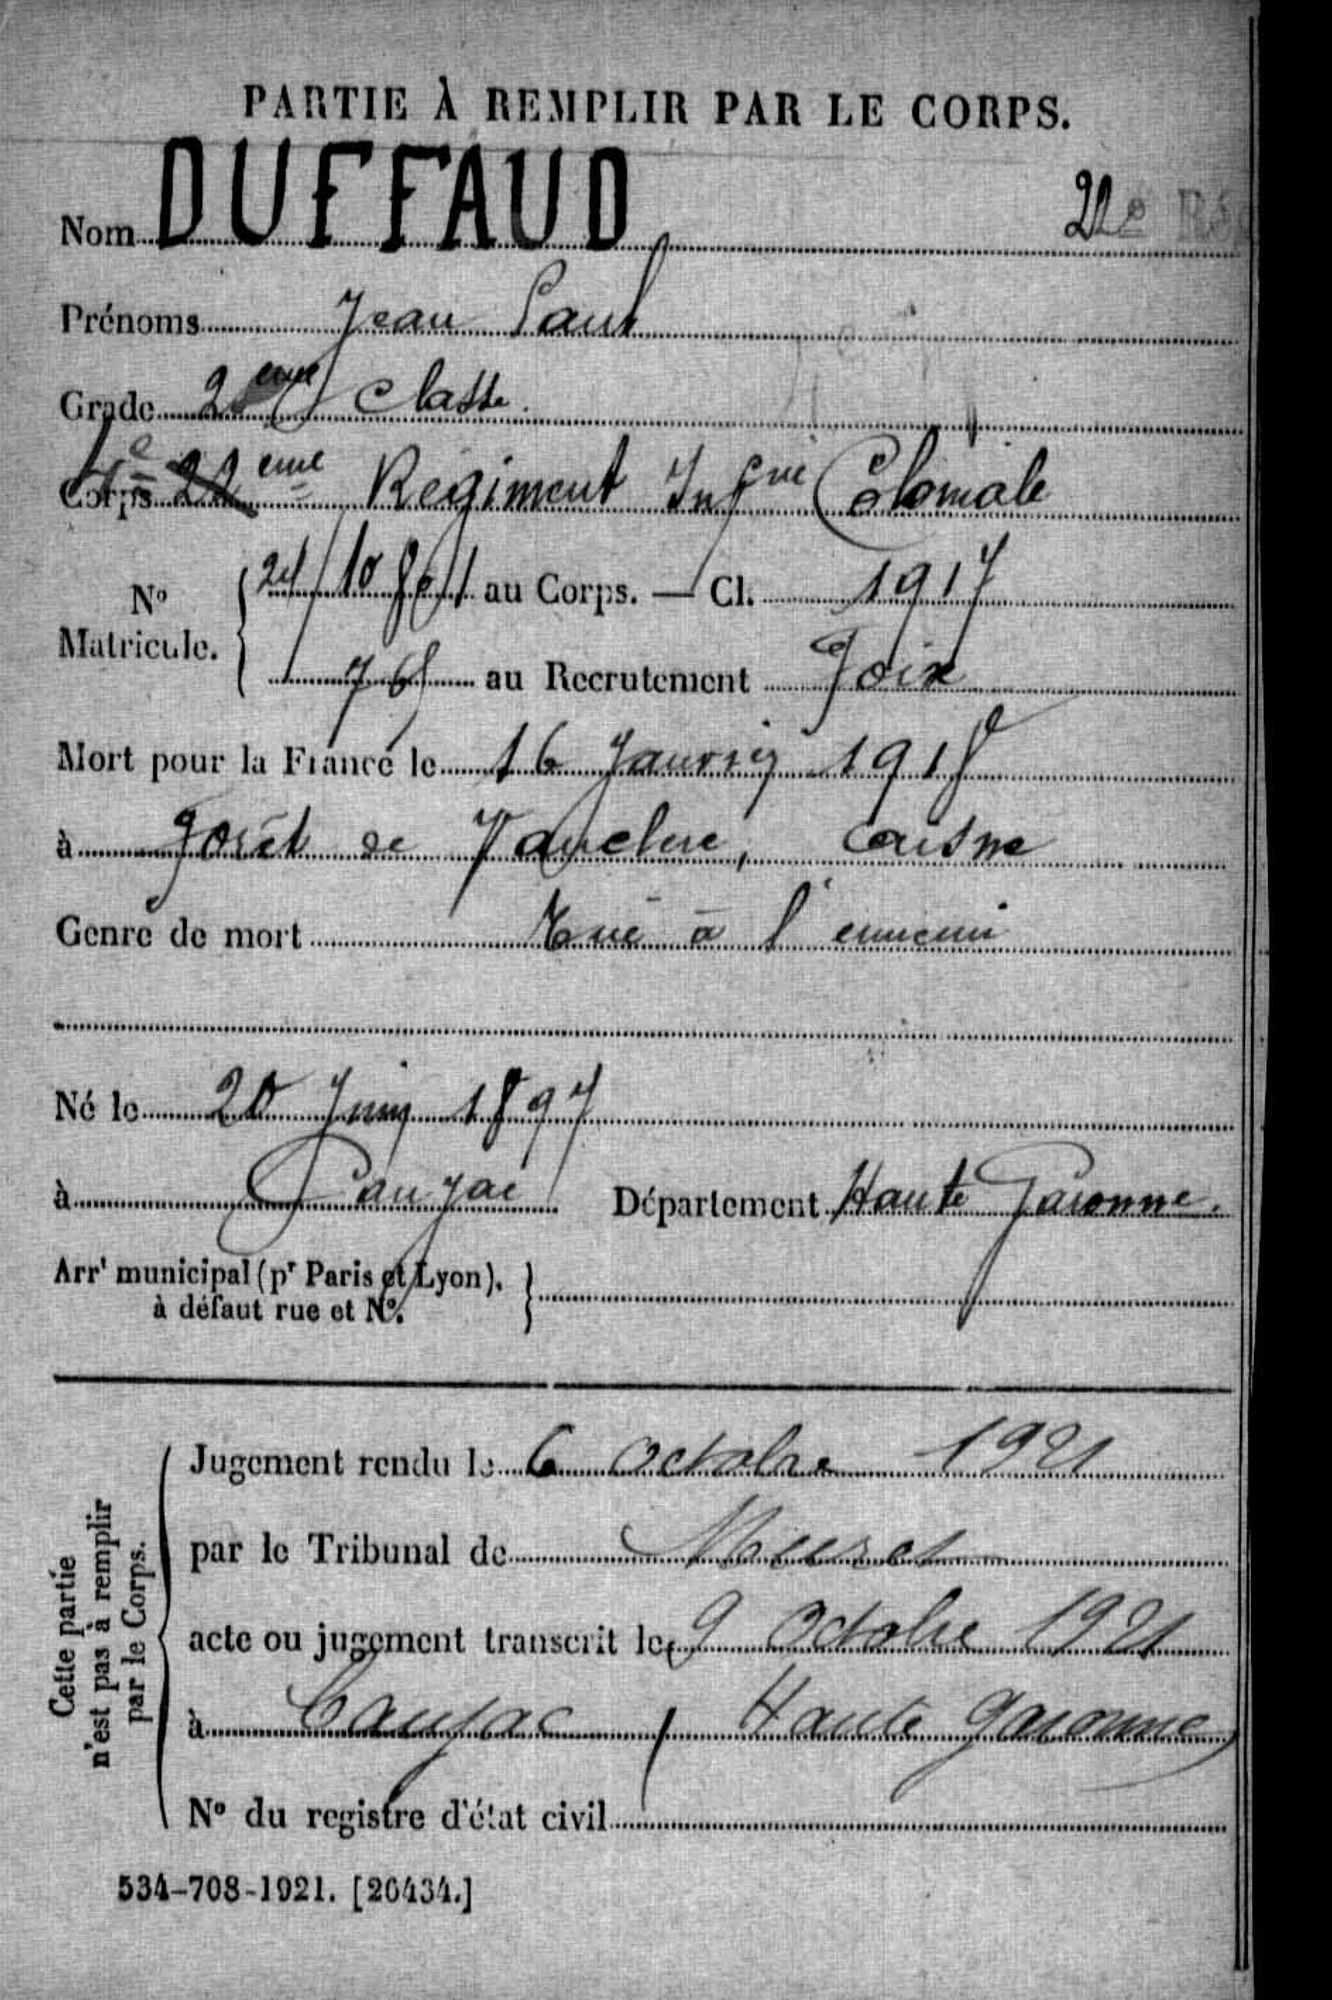 PARTIE À REMPLIR PAR LE CORPS.
Nom DUFFAUD
22e Ré
Prénoms Jean Paul
Grade 2eme Classe
Corps 4e 22 eme Régiment Infrie Coloniale
N° Matricule. { au Corps. — Cl. 1917
768 au Recrutement Foix
Mort pour la France le 16 Janvier 1918
à Forêt de Vauclerc, Aisne
Genre de mort Tué à l'ennemi
Né le 20 Juin 1897
à Caujac Département Haute Garonne.
Arrt municipal (pr Paris et Lyon),
à défaut rue et N°. }
Cette partie
n'est pas à remplir
par le Corps.
Jugement rendu le 6 Octobre 1921
par le Tribunal de Muret
acte ou jugement transcrit le 9 Octobre 1921
à Caujac / Haute Garonne
N° du registre d'état civil
534-708-1921. [26434.]